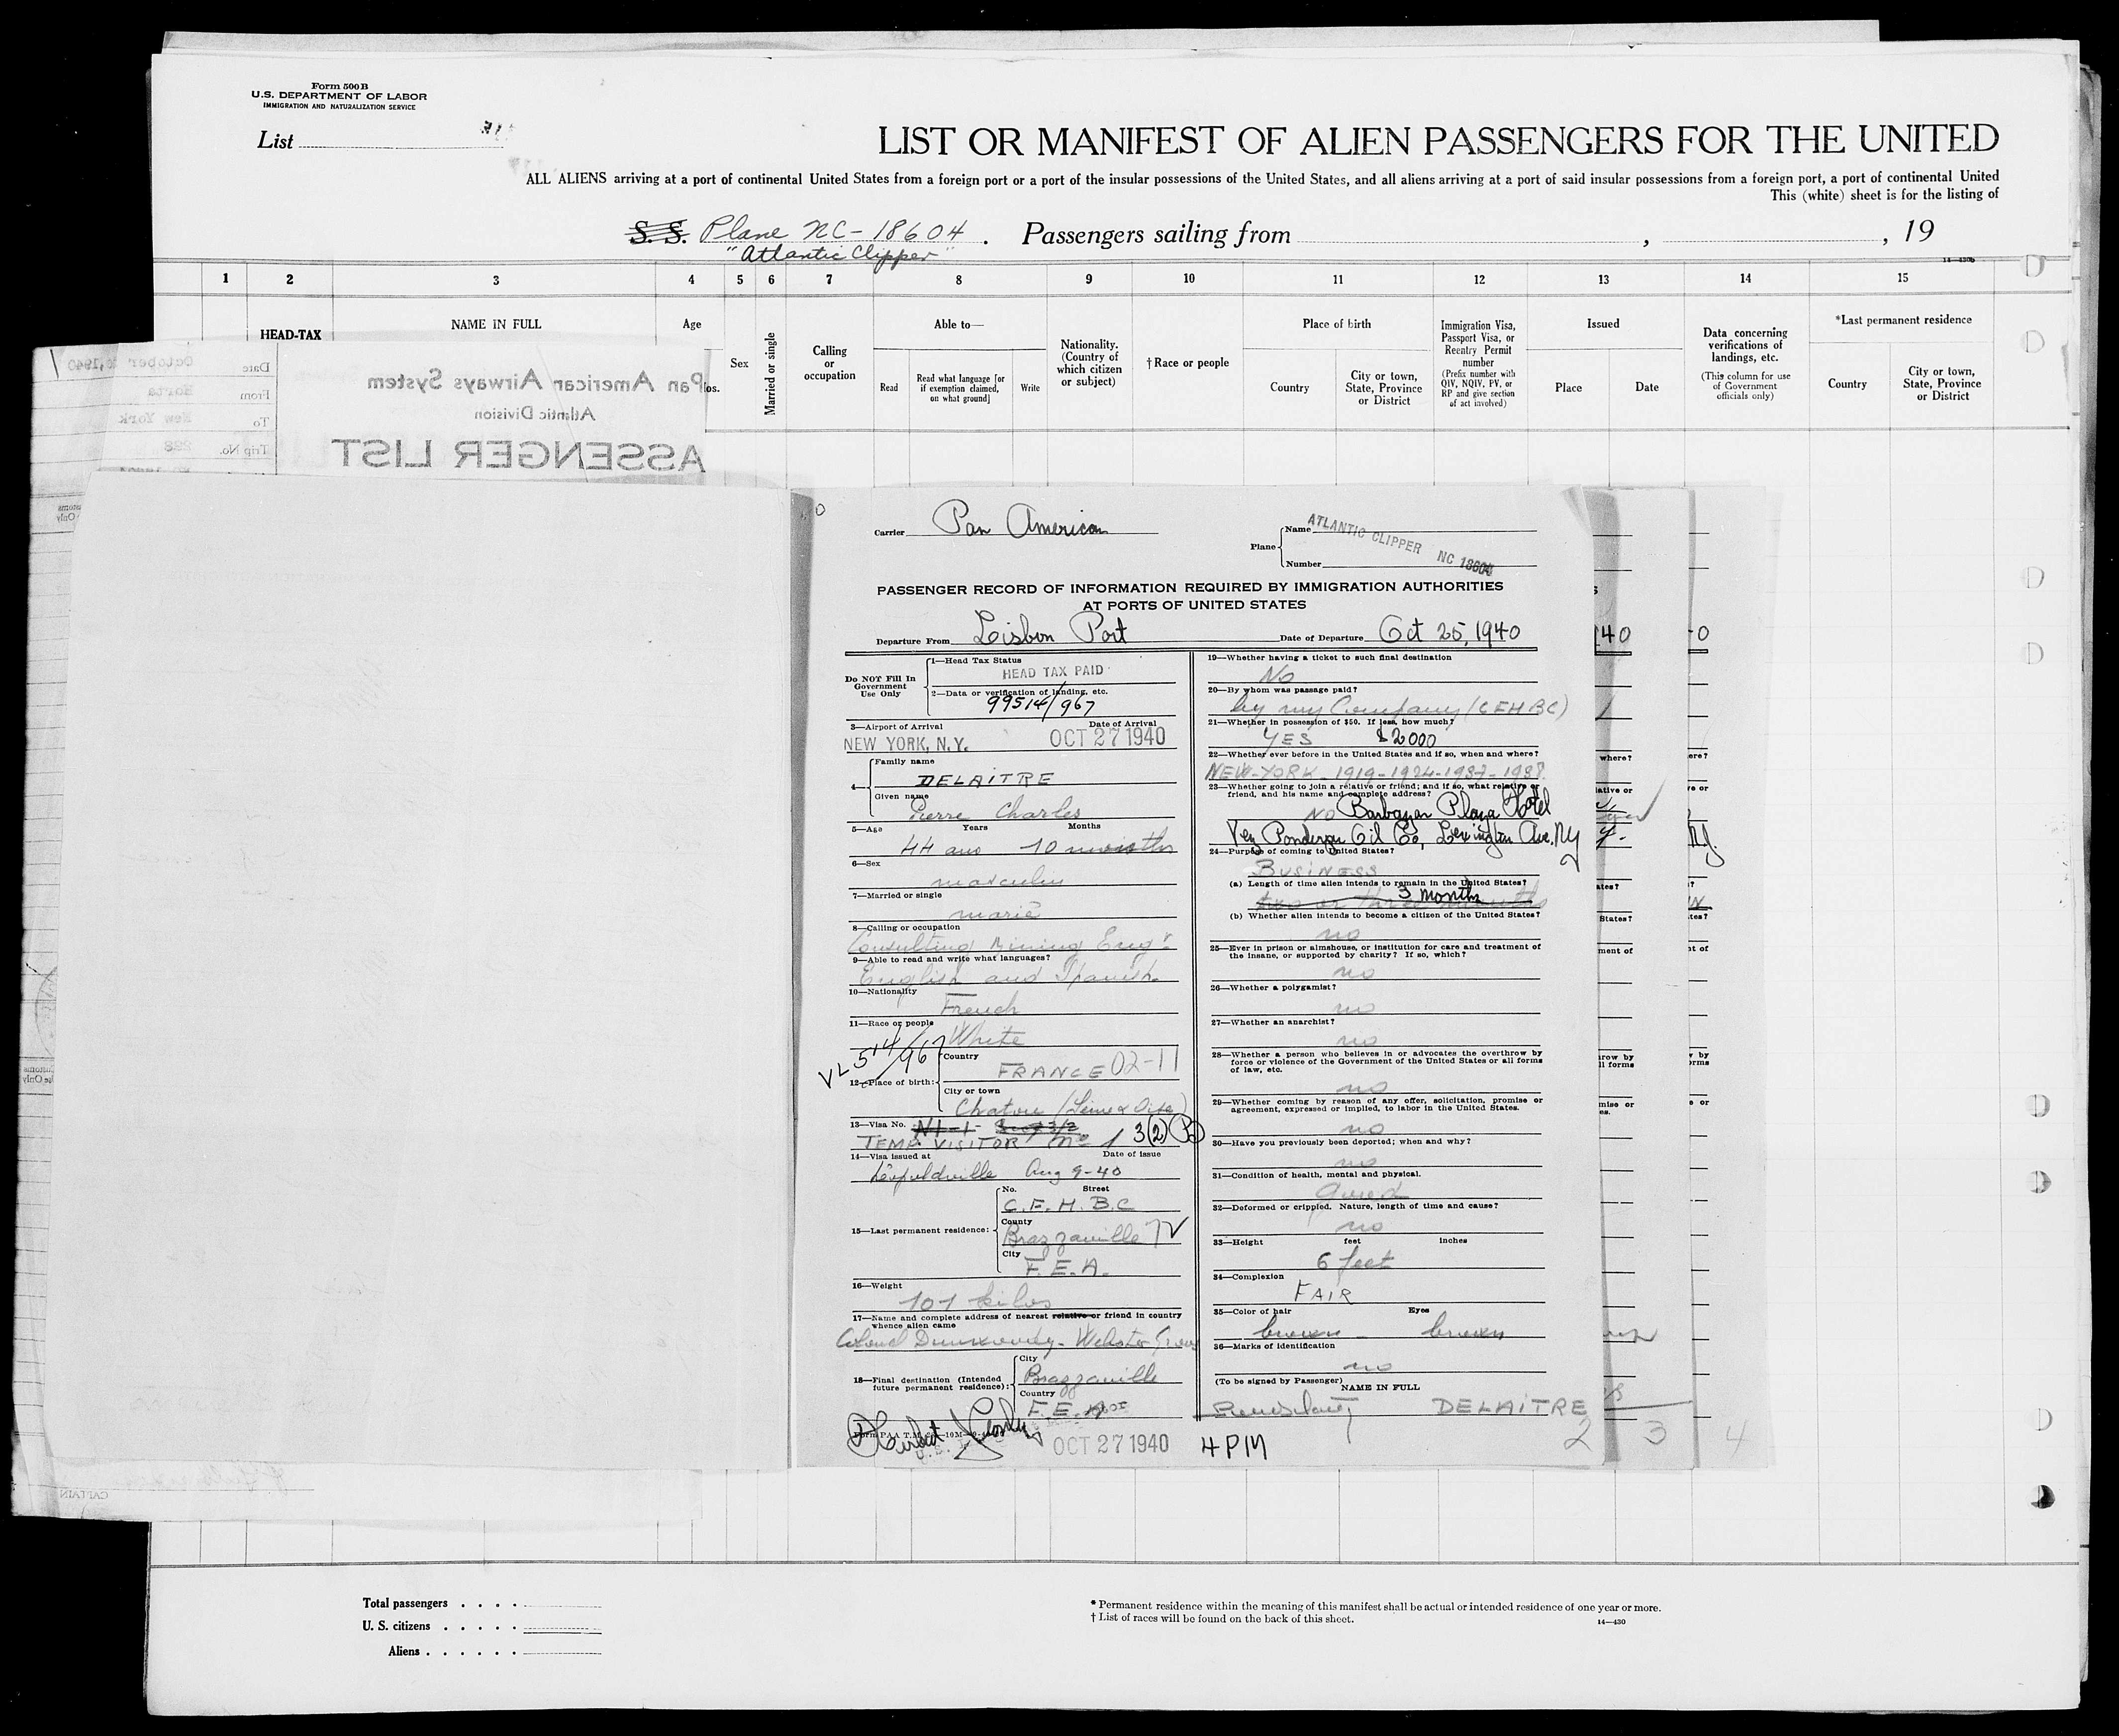 Form 500B
U.S. DEPARTMENT OF LABOR
IMMIGRATION AND NATURALIZATION SERVICE
List
LIST OR MANIFEST OF ALIEN PASSENGERS FOR THE UNITED
ALL ALIENS arriving at a port of continental United States from a foreign port or a port of the insular possessions of the United States, and all aliens arriving at a port of said insular possessions from a foreign port, a port of continental United
This (white) sheet is for the listing of
S. S. Plane NC-18604 . Passengers sailing from , , 19
"Atlantic Clipper"
14—430B
1 2 3 4 5 6 7 8 9 10 11 12 13 14 15
HEAD-TAX
NAME IN FULL
Age
os.
Sex
Married or single
Calling or occupation
Able to—
Read
Read what language [or if exemption claimed, on what ground]
Write
Nationality. (Country of which citizen or subject)
†Race or people
Place of birth
Country
City or town, State, Province or District
Immigration Visa, Passport Visa, or Reentry Permit number
(Prefix number with QIV, NQIV, PV, or RP and give section of act involved)
Issued
Place
Date
Data concerning verifications of landings, etc.
(This column for use of Government officials only)
*Last permanent residence
Country
City or town, State, Province or District
Pan American Airways System
Atlantic Division
ASSENGER LIST
Date October , 1940
From Horta
To New York
Trip No. 228
Carrier Pan American
Plane
Name ATLANTIC CLIPPER
Number NC 18604
PASSENGER RECORD OF INFORMATION REQUIRED BY IMMIGRATION AUTHORITIES
AT PORTS OF UNITED STATES
Departure From Lisbon Port
Date of Departure Oct 25, 1940
Do NOT Fill In
Government
Use Only
1—Head Tax Status
HEAD TAX PAID
2—Data or verification of landing, etc.
99514/967
3—Airport of Arrival Date of Arrival
NEW YORK, N.Y. OCT 27 1940
4—
Family name
DELAITRE
Given name
Pierre Charles
5—Age Years Months
44 ans 10 months
6—Sex
masculin
7—Married or single
marié
8—Calling or occupation
Consulting Mining Engr
9—Able to read and write what languages?
English and Spanish
10—Nationality
French
11—Race or people
White
VL 514/967
12—Place of birth:
Country
FRANCE 02-11
City or town
Chatou (Seine & Oise)
13—Visa No.
TEMP. VISITOR No 1 3(2)(B)
14—Visa issued at Date of issue
Léopoldville Aug 9-40
15—Last permanent residence:
No. Street
C.F.H.B.C
County
Brazzaville
City
F.E.A.
16—Weight
101 kilos
17—Name and complete address of nearest relative or friend in country
whence alien came
18—Final destination (Intended
future permanent residence):
City
Brazzaville
Country
F.E.A
Form PAA T.M.
OCT 27 1940
4 PM
19—Whether having a ticket to such final destination
No
20—By whom was passage paid?
by my Company (CFHBC)
21—Whether in possession of $50. If less, how much?
YES $2000
22—Whether ever before in the United States and if so, when and where?
NEW-YORK - 1919-1924-1937-1938
23—Whether going to join a relative or friend; and if so, what relative or
friend, and his name and complete address?
NO Barbazon Plaza Hotel
Oil Co, Lexington Ave. NY
24—Purpose of coming to United States?
BUSINESS
(a) Length of time alien intends to remain in the United States?
two or three months 3 months
(b) Whether alien intends to become a citizen of the United States?
no
25—Ever in prison or almshouse, or institution for care and treatment of
the insane, or supported by charity? If so, which?
no
26—Whether a polygamist?
no
27—Whether an anarchist?
no
28—Whether a person who believes in or advocates the overthrow by
force or violence of the Government of the United States or all forms
of law, etc.
no
29—Whether coming by reason of any offer, solicitation, promise or
agreement, expressed or implied, to labor in the United States.
no
30—Have you previously been deported; when and why?
no
31—Condition of health, mental and physical.
good
32—Deformed or crippled. Nature, length of time and cause?
no
33—Height feet inches
6 feet
34—Complexion
FAIR
35—Color of hair Eyes
brown - brown
36—Marks of identification
no
(To be signed by Passenger)
NAME IN FULL
DELAITRE
2
3
4
CAPTAIN
Total passengers . . . .
U. S. citizens . . . . .
Aliens . . . . . .
* Permanent residence within the meaning of this manifest shall be actual or intended residence of one year or more.
† List of races will be found on the back of this sheet.
14—430